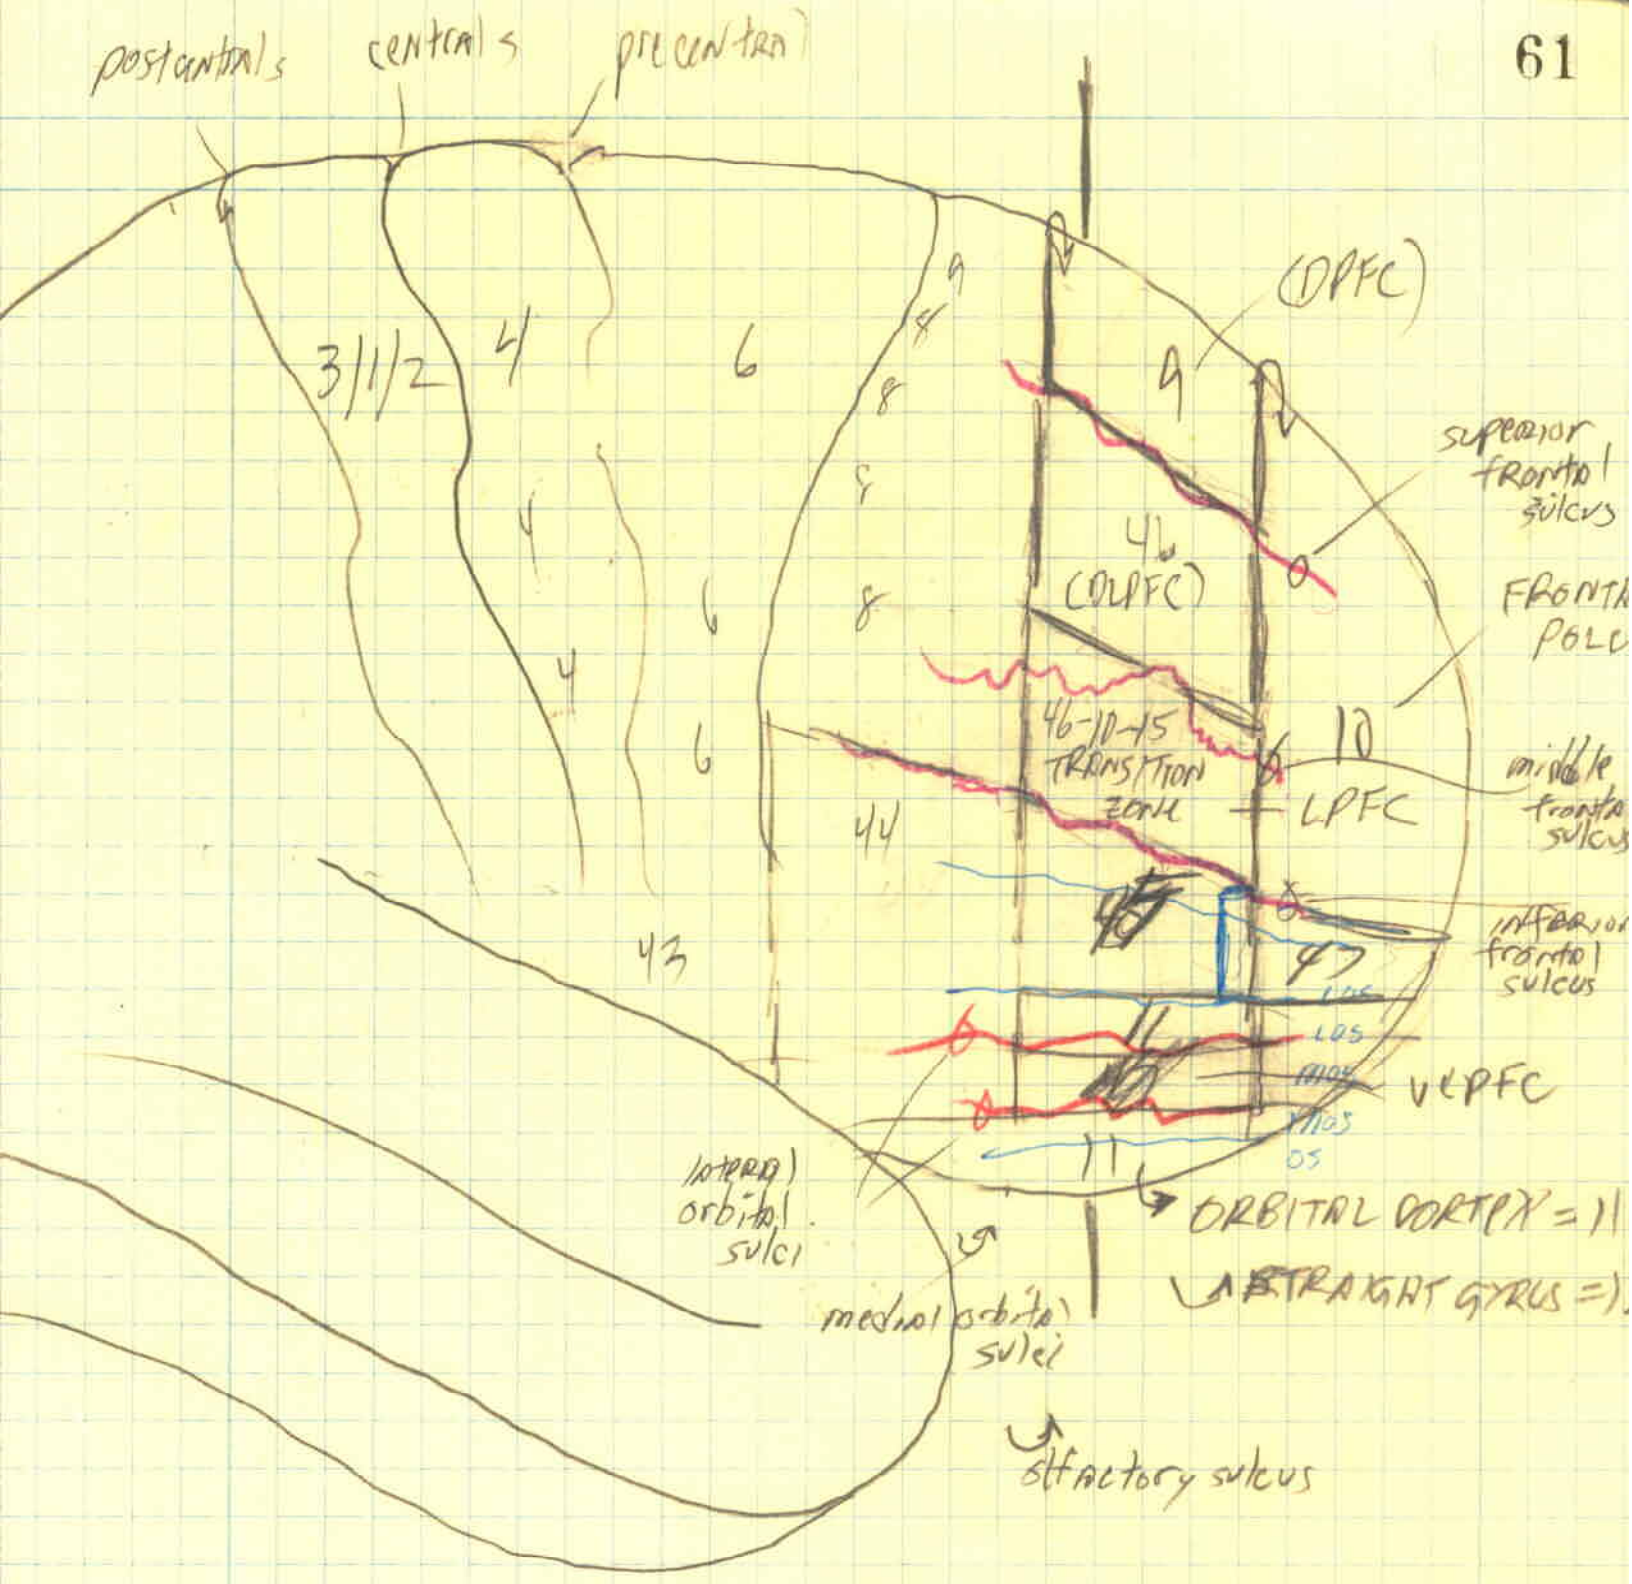 61
postcentrals
centrals
precentral
(DPFC)
9
8
3/1/2
4
6
9
8
superior
frontal
sulcus
8
4
46
(DLPFC)
8
6
FRONTA
POLE
4
46-10-15
TRANSITION
ZONE
10
6
LPFC
middle
fronta
sulcus
44
43
47
inferior
frontal
sulcus
LOS
11
LOS
MOS
VLPFC
MOS
11
OS
lateral
orbital
sulci
ORBITAL CORTEX = 11
STRAIGHT GYRUS =
medial orbital
sulci
olfactory sulcus